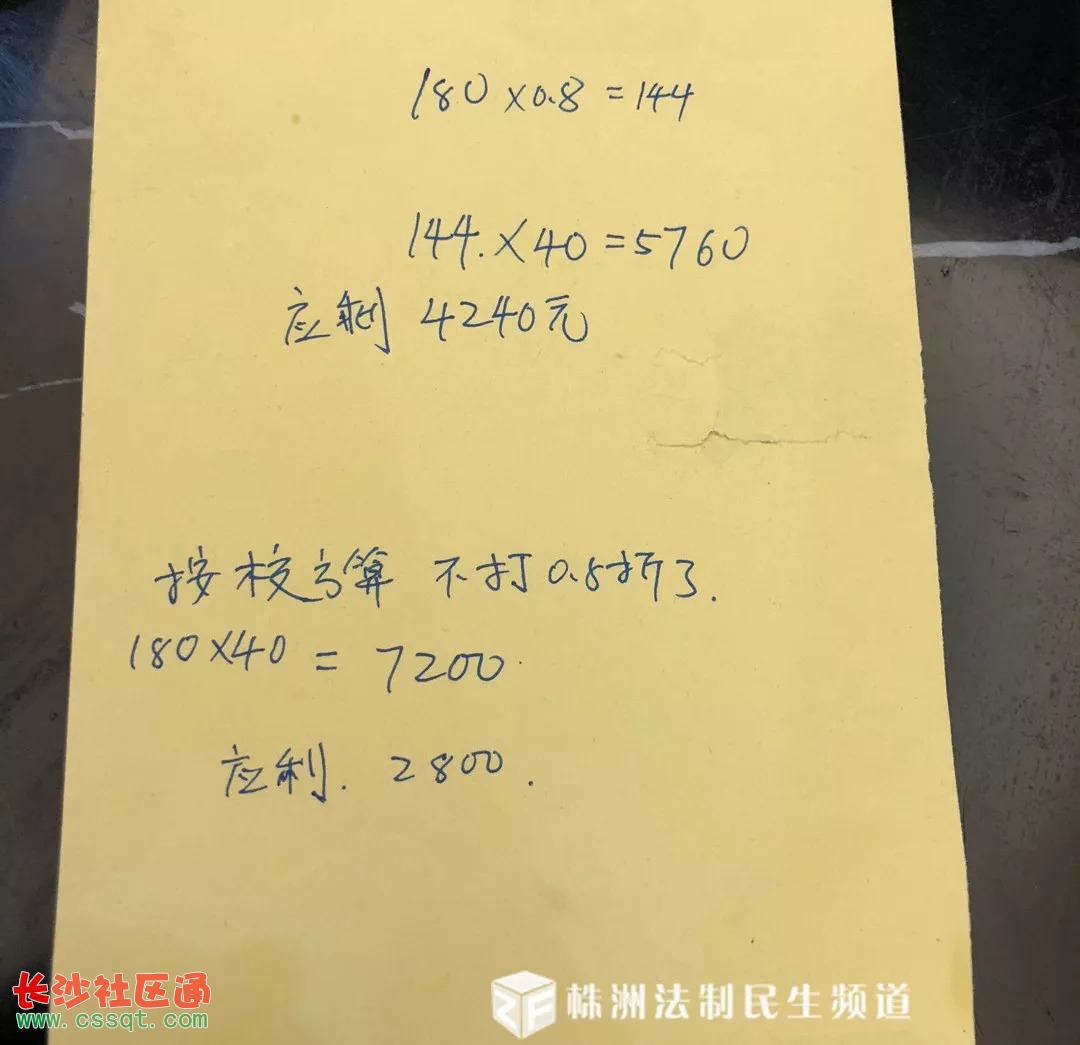 180×0.8=144
144.×40=5760
应利 4240元
按校方算 不打0.8折了.
180×40=7200.
应利. 2800.
长沙社区通
www.cssqt.com
ZF 株洲法制民生频道